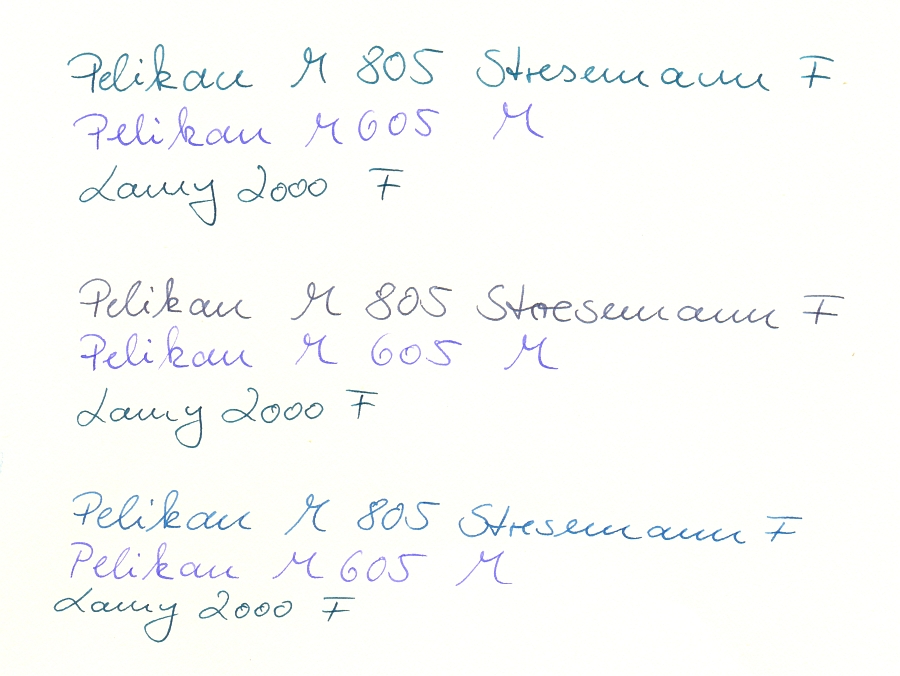 Pelikan M 805 Stresemann F
Pelikan M605 M
Lamy 2000 F
Pelikan M 805 Stresemann F
Pelikan M 605 M
Lamy 2000 F
Pelikan M 805 Stresemann F
Pelikan M 605 M
Lamy 2000 F